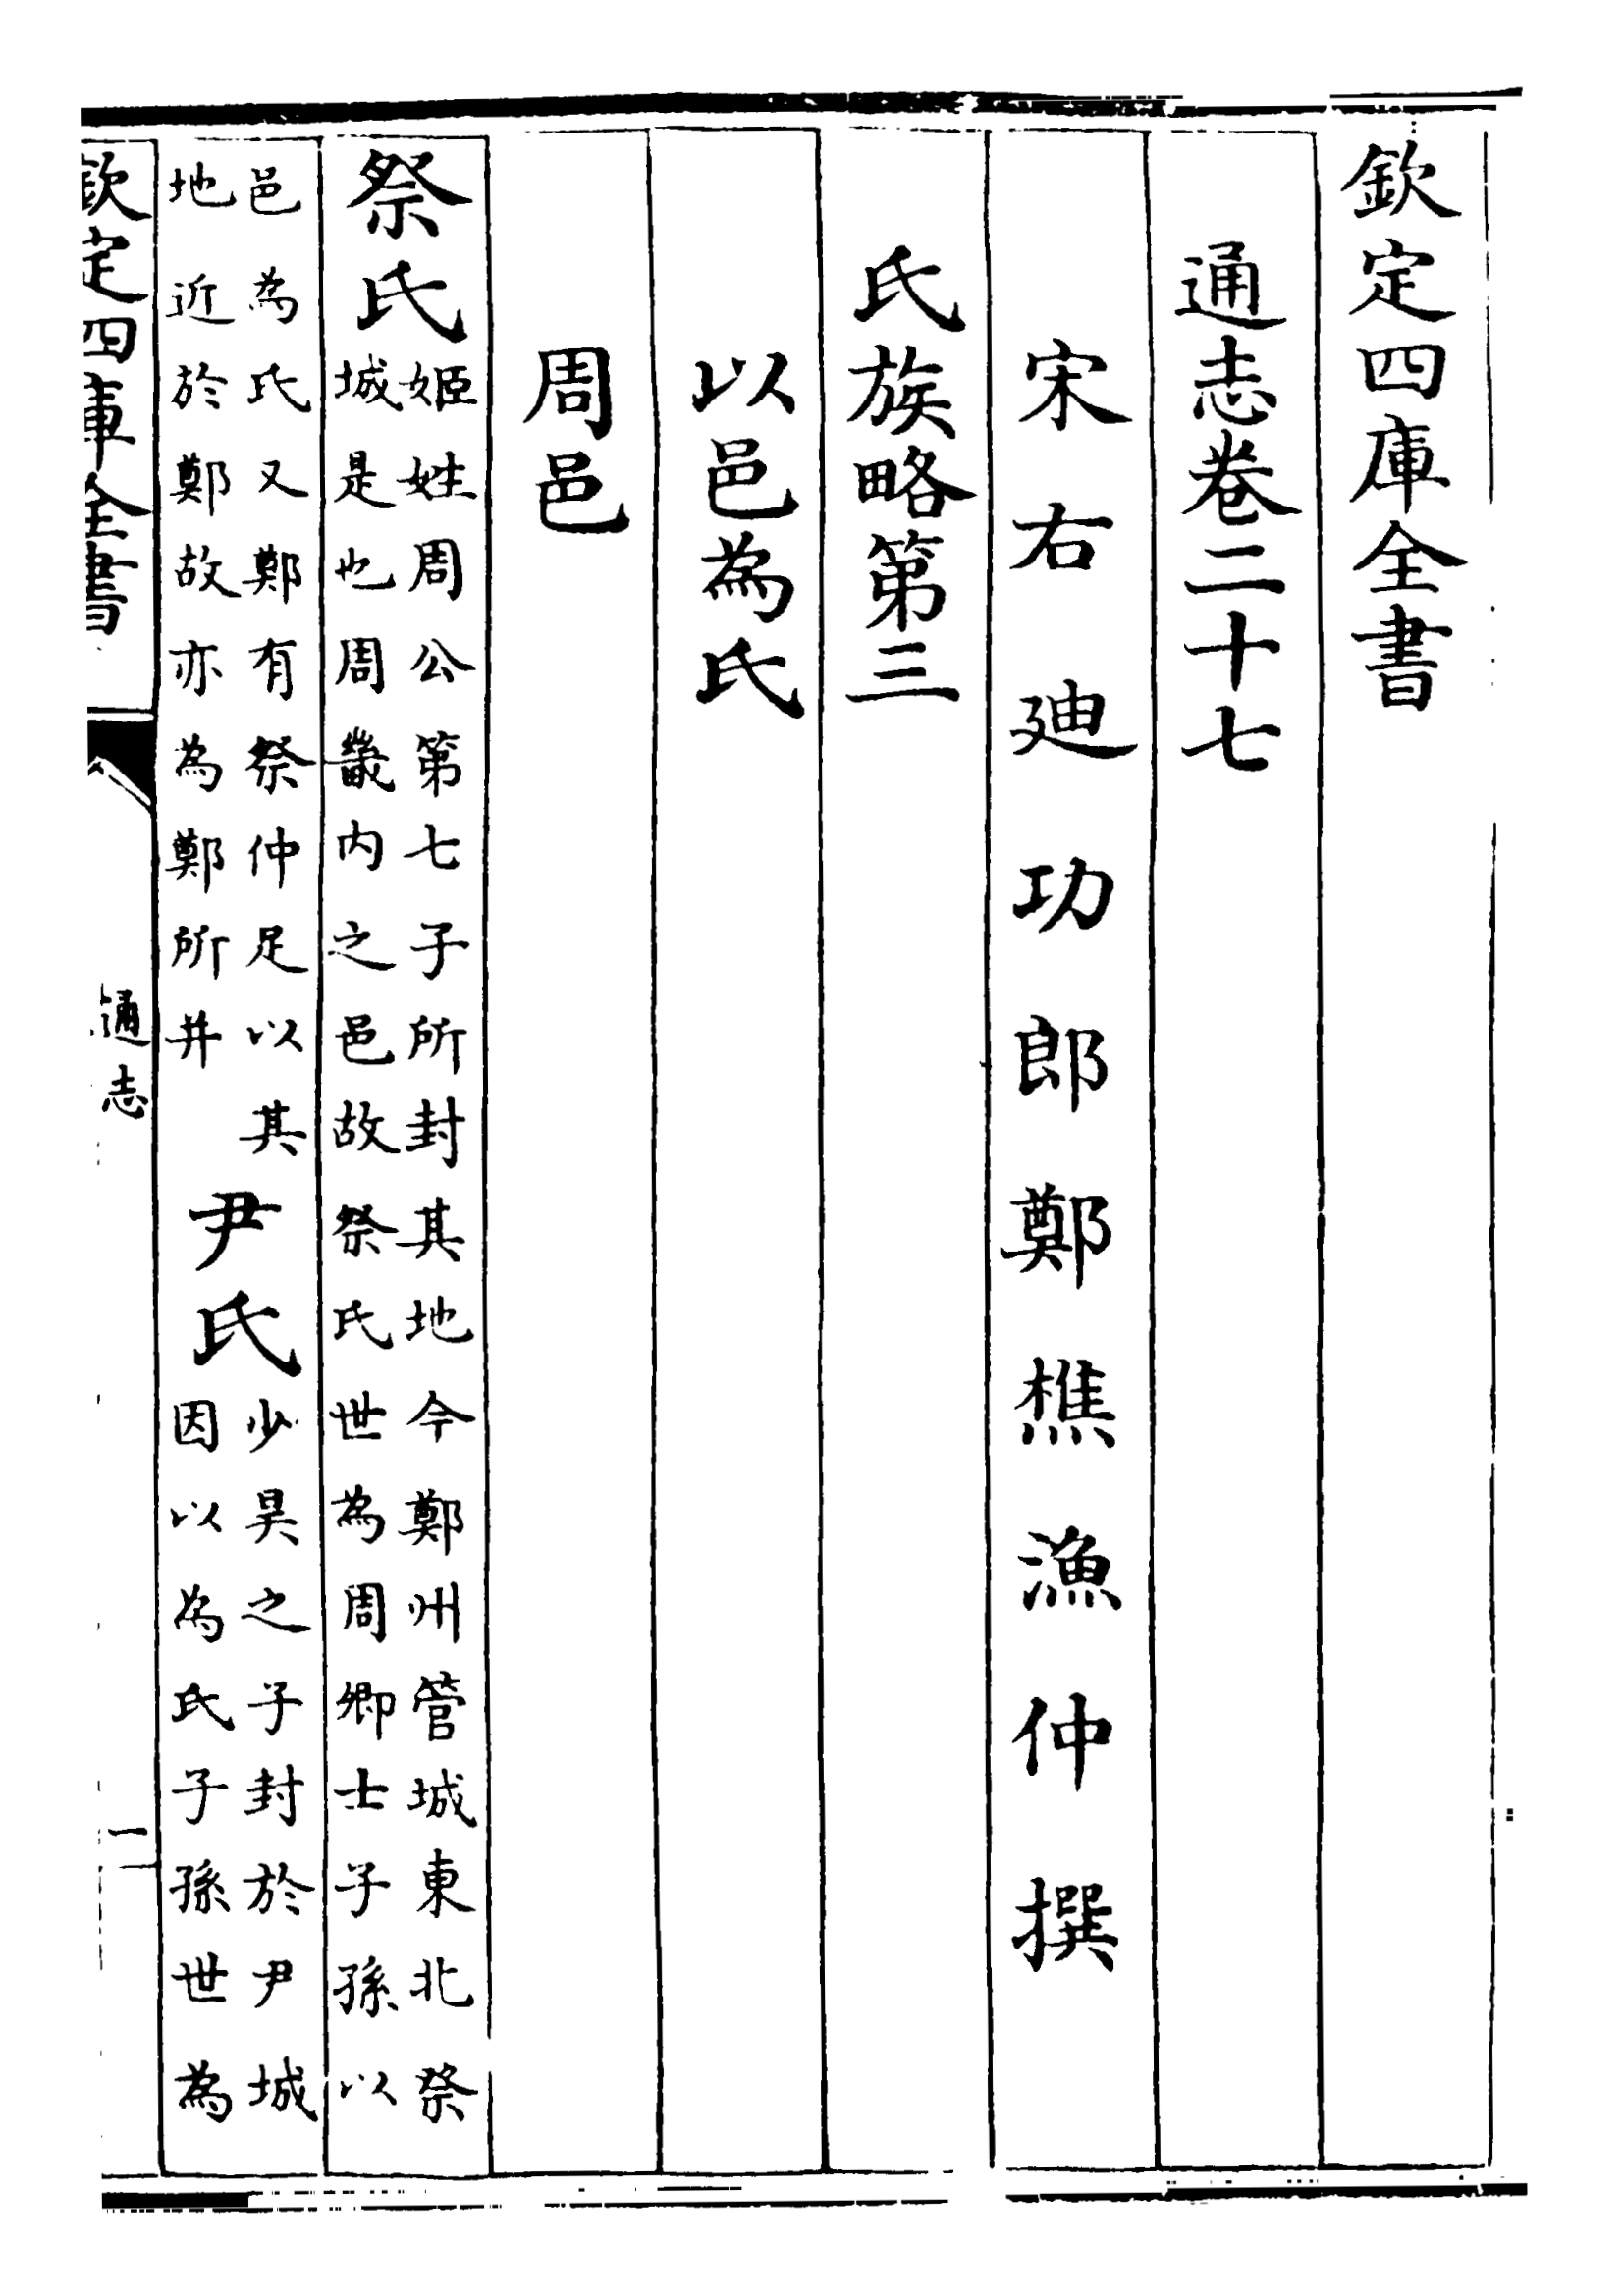 欽定四庫全書
通志卷二十七
宋右廸功郎鄭樵漁仲撰
氏族略第三
以邑為氏
周邑
祭氏
姬姓周公第七子所封其地今鄭州管城東北祭
城是也周畿内之邑故祭氏世為周卿士子孫以
邑為氏又鄭有祭仲足以其
地近於鄭故亦為鄭所并
尹氏
少昊之子封於尹城
因以為氏子孫世為
欽定四庫全書
通志
一